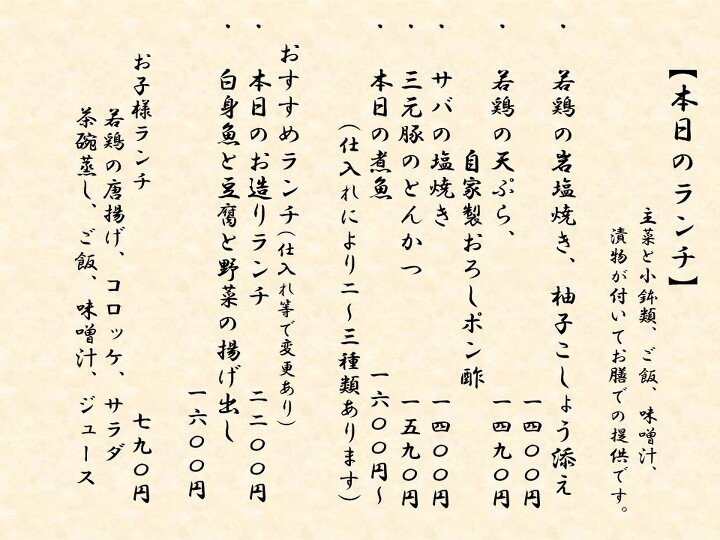 【本日のランチ】
主菜と小鉢類、ご飯、味噌汁、
漬物が付いてお膳での提供です。
・若鶏の岩塩焼き、柚子こしょう添え
一四〇〇円
・若鶏の天ぷら、
自家製おろしポン酢
一四九〇円
・サバの塩焼き 一四〇〇円
・三元豚のとんかつ 一五九〇円
・本日の煮魚 一六〇〇円～
（仕入れにより二～三種類あります）
おすすめランチ（仕入れ等で変更あり）
・本日のお造りランチ 二二〇〇円
・白身魚と豆腐と野菜の揚げ出し
一六〇〇円
お子様ランチ 七九〇円
若鶏の唐揚げ、コロッケ、サラダ
茶碗蒸し、ご飯、味噌汁、ジュース